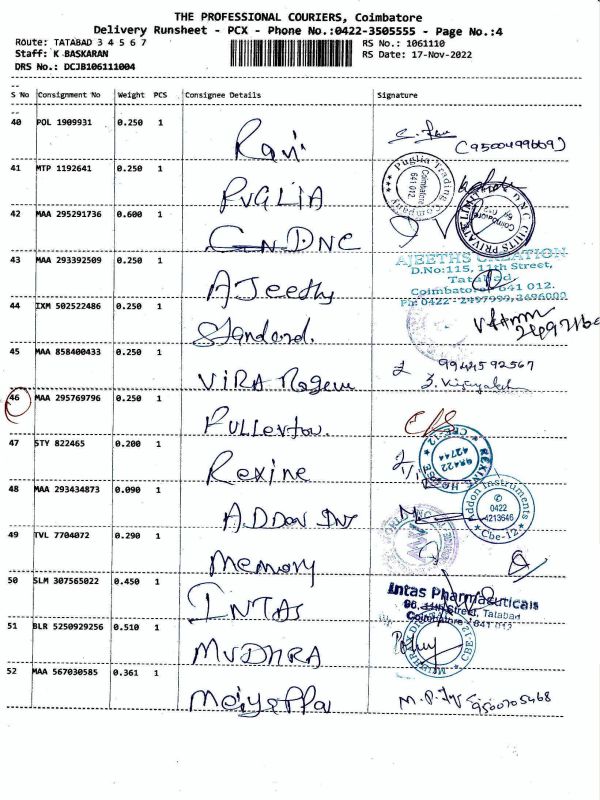 THE PROFESSIONAL COURIERS, Coimbatore
Delivery Runsheet - PCX - Phone No.:0422-3505555 - Page No.:4
Route: TATABAD 3 4 5 6 7
RS No.: 1061110
Staff: K BASKARAN
RS Date: 17-Nov-2022
DRS No.: DCJB106111004
S No Consignment No Weight PCS Consignee Details Signature
40 POL 1909931 0.250 1 Ravi
(9500499669)
41 MTP 1192641 0.250 1 PUGLIA
*** Puglia Trading Company *** Coimbatore 641 012.
42 MAA 295291736 0.600 1 DNC
DNC CHITS PRIVATE LIMITED
43 MAA 293392509 0.250 1 AJeeths
AJEETHS CREATION
D.No:115, 11th Street,
Tatabad,
Coimbatore 641 012.
Ph: 0422 - 2497999, 2496000
44 IXM 502522486 0.250 1 Standard.
45 MAA 858400433 0.250 1 VIRA
9944592567
46 MAA 295769796 0.250 1 Fullerton.
47 STY 822465 0.200 1 Rexine
48 MAA 293434873 0.090 1 ADDon INT
Addon Instruments
0422
4213646
* Cbe-12 *
49 TVL 7704072 0.290 1 Memory
50 SLM 307565022 0.450 1 INTAS
Intas Pharmaceuticals
96, 11th Street, Tatabad
Coimbatore - 641 012
51 BLR 5250929256 0.510 1 MUDHRA
52 MAA 567030585 0.361 1 Meiyappa
9500705468